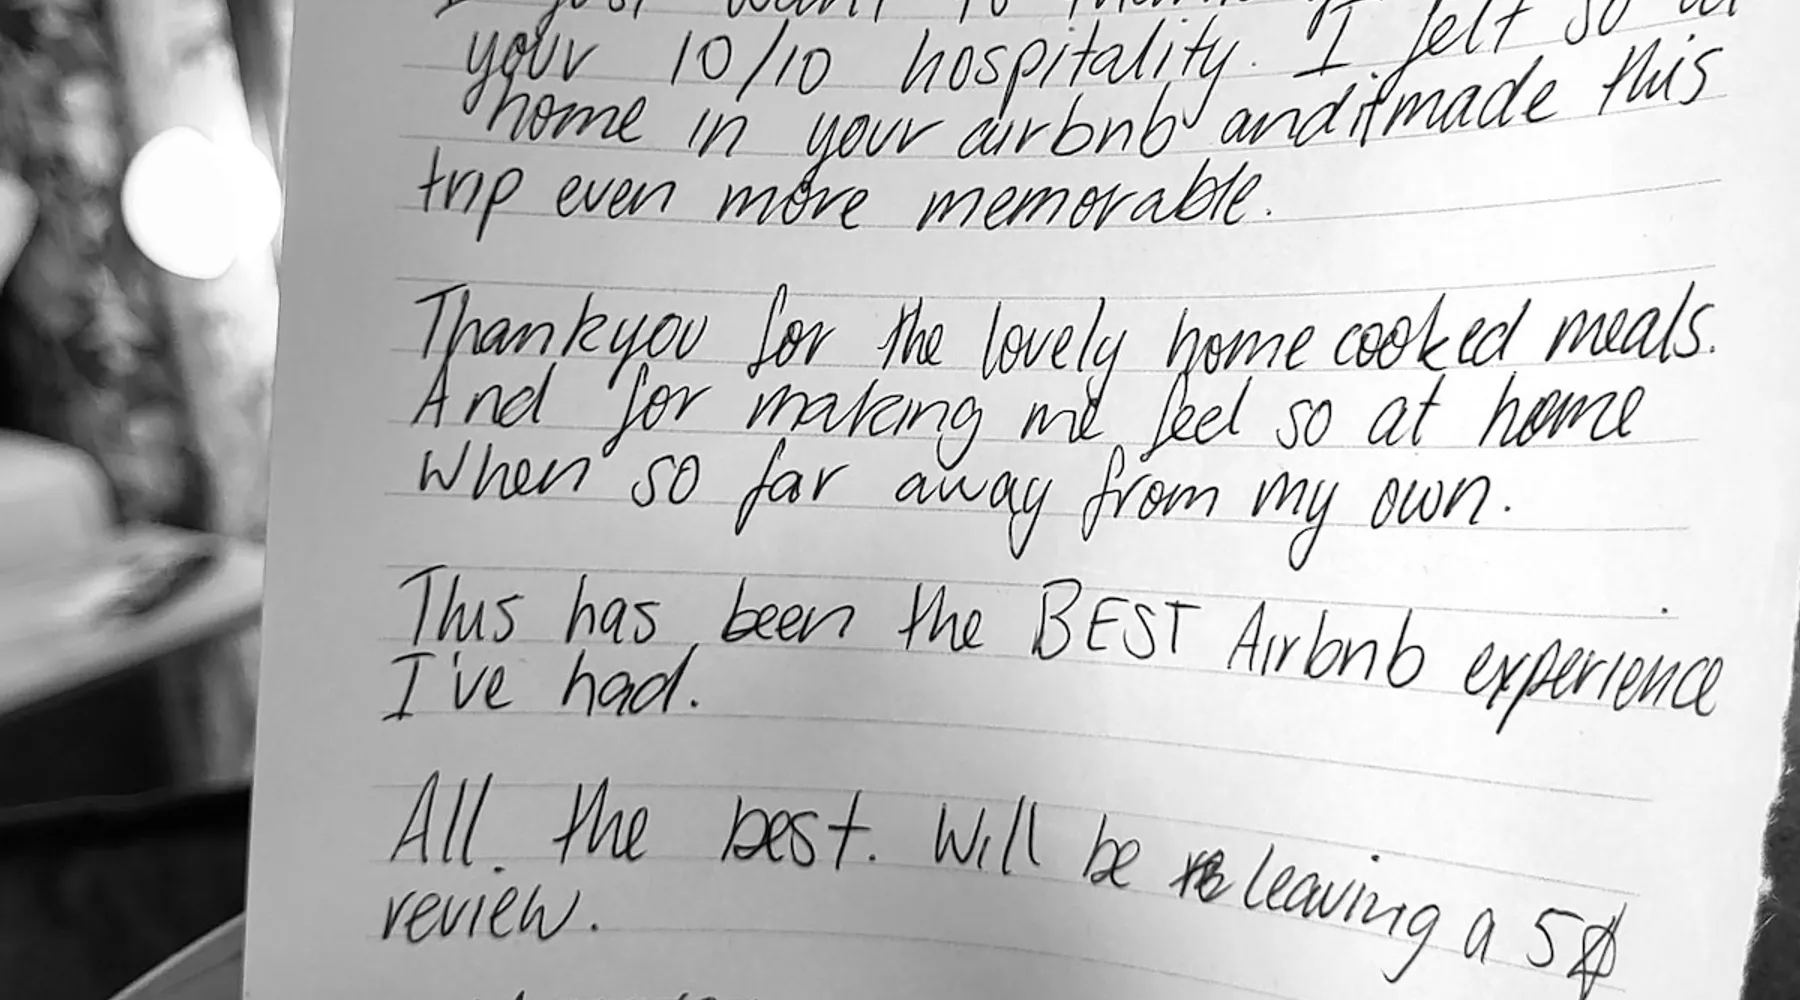 I just want to thank
your 10/10 hospitality. I felt so at
home in your airbnb and it made this
trip even more memorable.
Thankyou for the lovely home cooked meals.
And for making me feel so at home
when so far away from my own.
This has been the BEST Airbnb experience
I've had.
All the best. Will be leaving a 5☆
review.